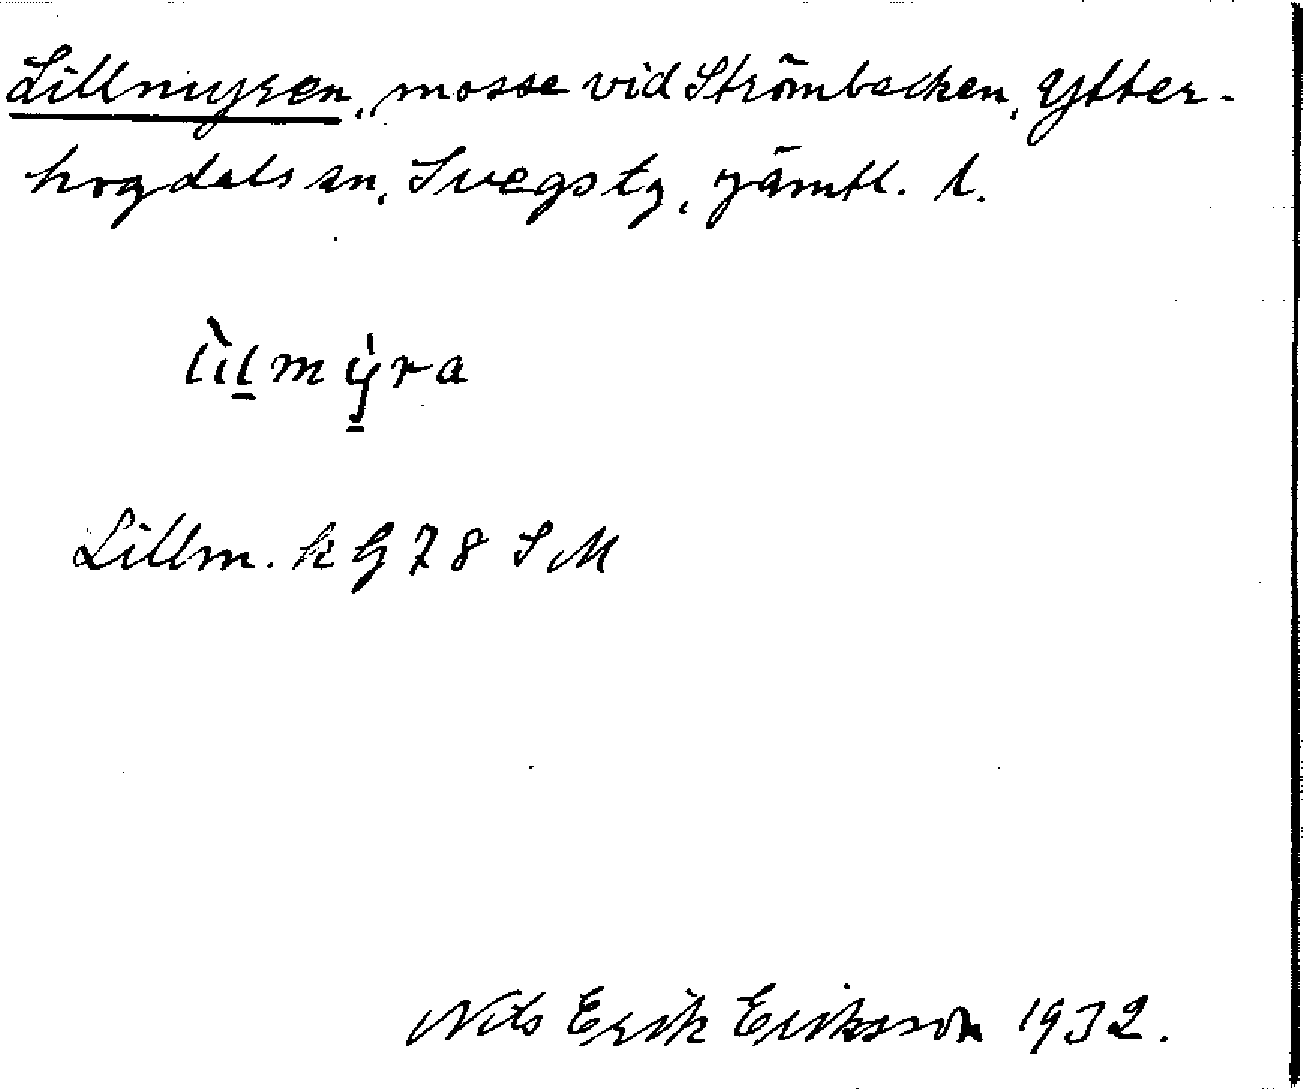 Lillmyren, mosse vid Strömbacken, Ytter-
hogdals sn, Svegs tg, Jämtl. l.
lìl̲mẏ̲ra
Lillm. k G 78 S M
Nils Erik Eriksson 1932.